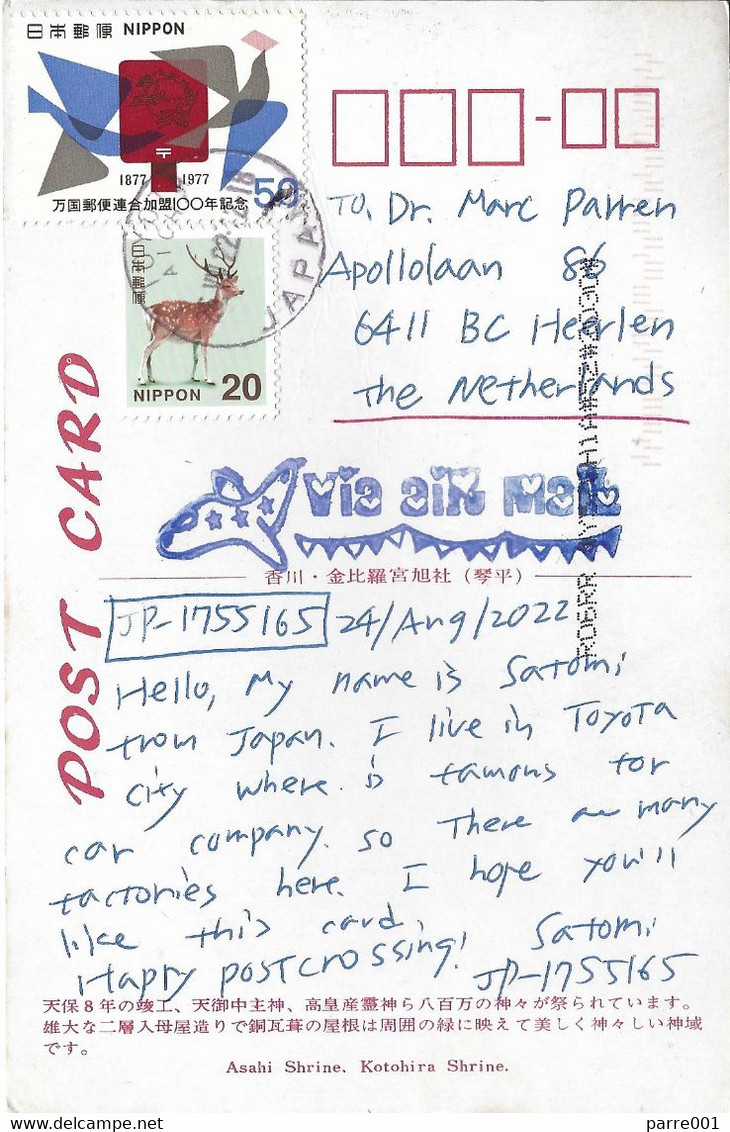 日本郵便 NIPPON
1877 1977
50
万国郵便連合加盟100年記念
日本郵便
NIPPON 20
JAPAN
TO, Dr. Marc Parren
Apollolaan 86
6411 BC Heerlen
The Netherlands
POST CARD
Via aiR MaiL
香川・金比羅宮旭社（琴平）
JP-1755165 24/Aug/2022
Hello, My name is Satomi
from Japan. I live in TOYOTA
city where is famous for
car company. so There are many
factories here. I hope you'll
like this card,
Happy postcrossing! Satomi
JP-1755165
天保8年の竣工、天御中主神、高皇産霊神ら八百万の神々が祭られています。
雄大な二層入母屋造りで銅瓦葺の屋根は周囲の緑に映えて美しく神々しい神域
です。
Asahi Shrine, Kotohira Shrine.
parre001